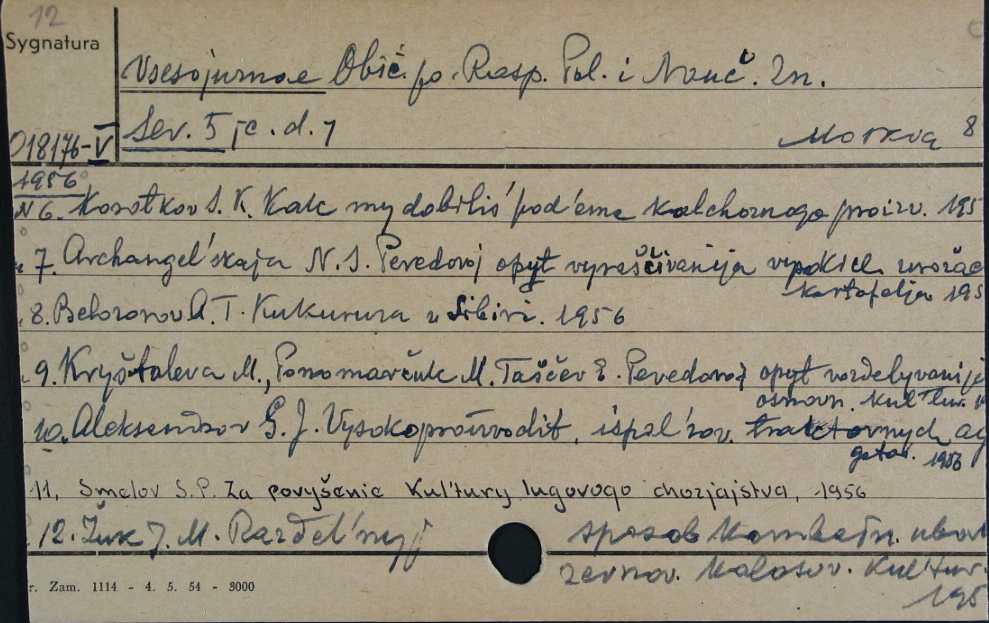 12
Sygnatura
Vsesojuznoe Obšč. po. Rasp. Pol. i Nauč. Zn.
Ser. 5 /c. d. 7
Moskva 8
018176-V
1956
N 6. Korotkov S. K. Kak my dobilis' pod'ema kolchoznogo proizv. 195
" 7. Archangel'skaja N. S. Peredovoj opyt vyraščivanija vysokich urožae
kartofelja 195
" 8. Belozorov A. T. Kukuruza v Sibiri. 1956
" 9. Kryštaleva M., Ponomarčuk M. Taščev E. Peredovoj opyt vozdelyvanije
osnovn. kul'tur.
" 10. Aleksandrov G. J. Vysokoproizvodit. ispol'zov. traktornych ag
gatov. 1956
" 11. Smelov S.P. Za povyšenie kul'tury lugovogo chozjajstva, 1956
" 12. Žuk J. M. Razdel'nyj sposob kombajn. ubor
zernov. kolosov. kul'tur.
195
r. Zam. 1114 - 4. 5. 54 - 3000